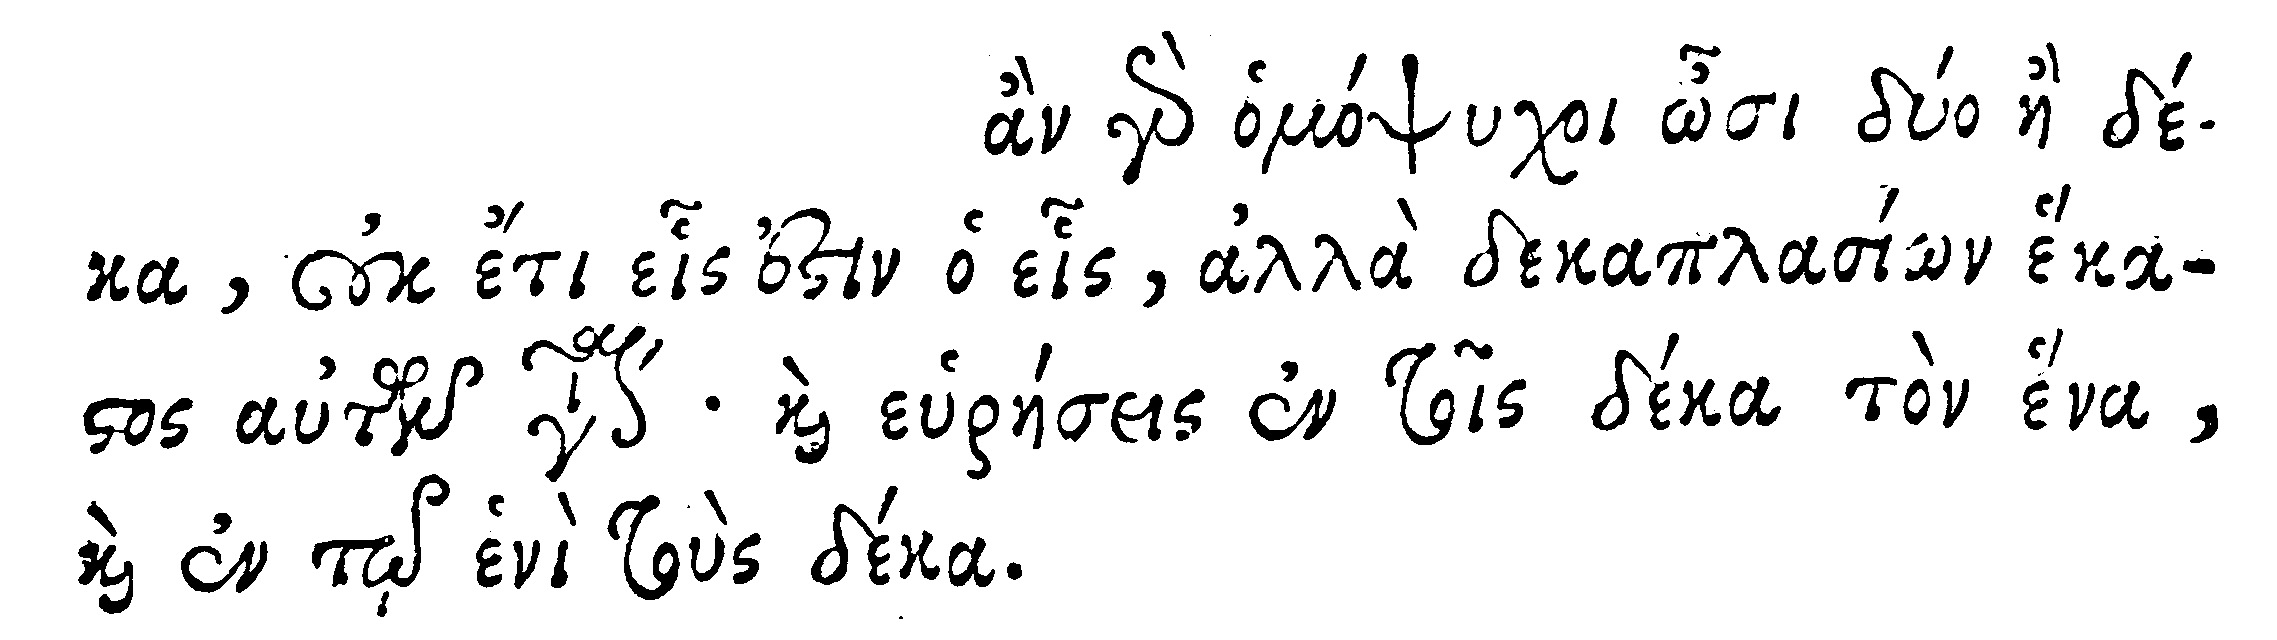 ἂν γὰρ ὁμόψυχοι ὦσι δύο ἢ δέ-
κα, οὐκ ἔτι εἷς ἐστιν ὁ εἷς, ἀλλὰ δεκαπλασίων ἕκα-
στος αὐτῶν γίνεται· καὶ εὑρήσεις ἐν τοῖς δέκα τὸν ἕνα,
καὶ ἐν τῷ ἑνὶ τοὺς δέκα.